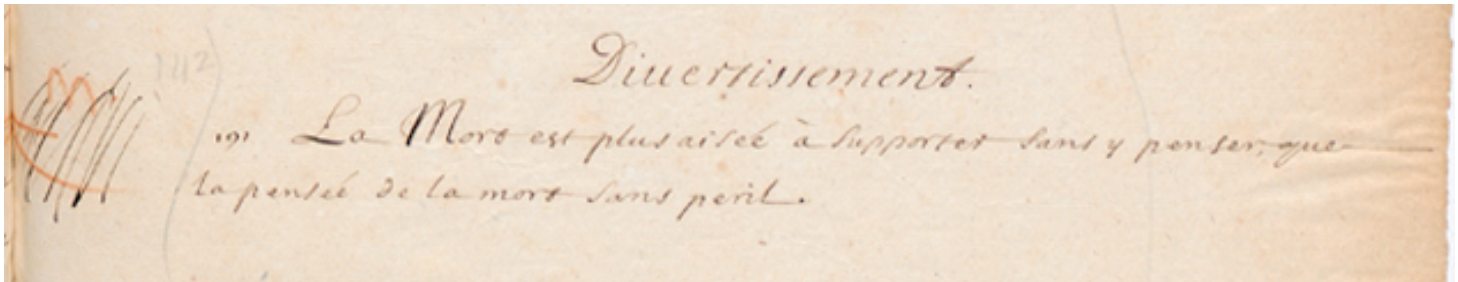 142
Diuertissement.
La Mort est plus aisée à supporter sans y penser, que
la pensée de la mort sans peril.